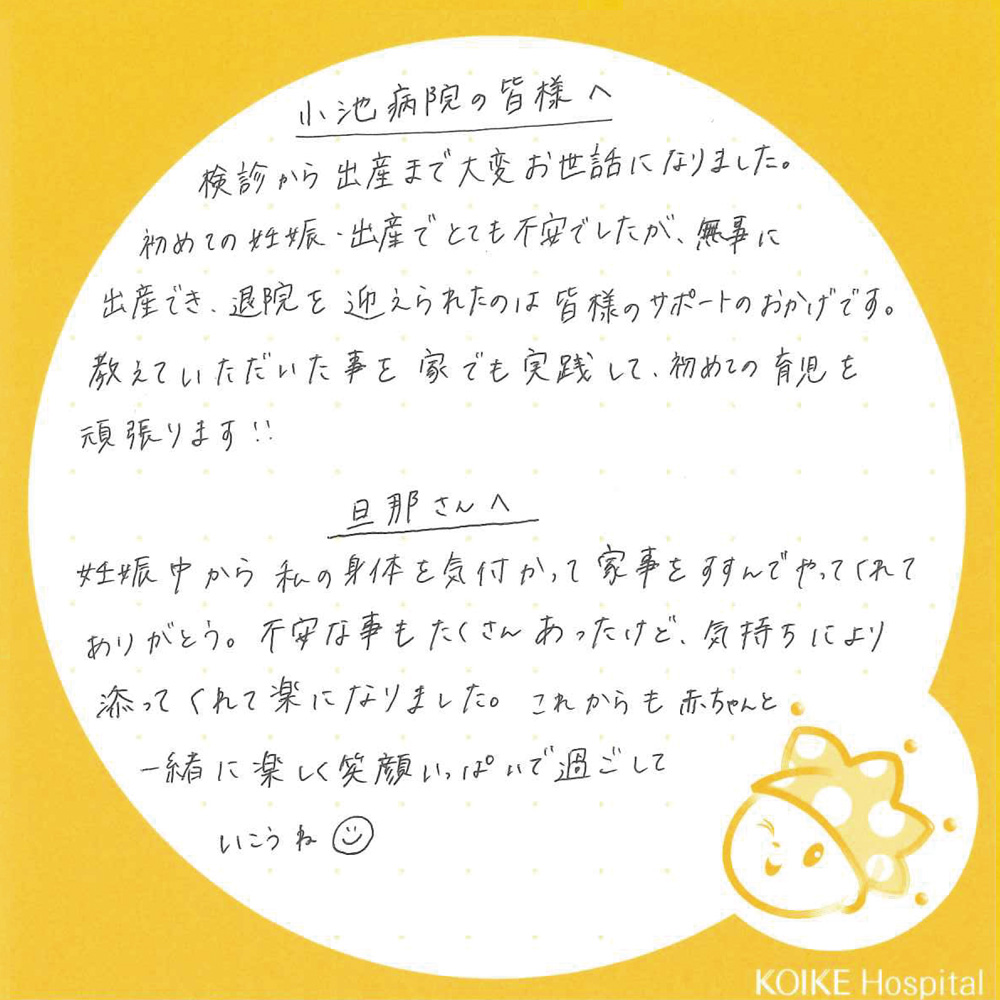 小池病院の皆様へ
検診から出産まで大変お世話になりました。
初めての妊娠・出産でとても不安でしたが、無事に
出産でき、退院を迎えられたのは皆様のサポートのおかげです。
教えていただいた事を家でも実践して、初めての育児を
頑張ります!!
旦那さんへ
妊娠中から私の身体を気付かって家事をすすんでやってくれて
ありがとう。不安な事もたくさんあったけど、気持ちにより
添ってくれて楽になりました。これからも赤ちゃんと
一緒に楽しく笑顔いっぱいで過ごして
いこうね☺
KOIKE Hospital